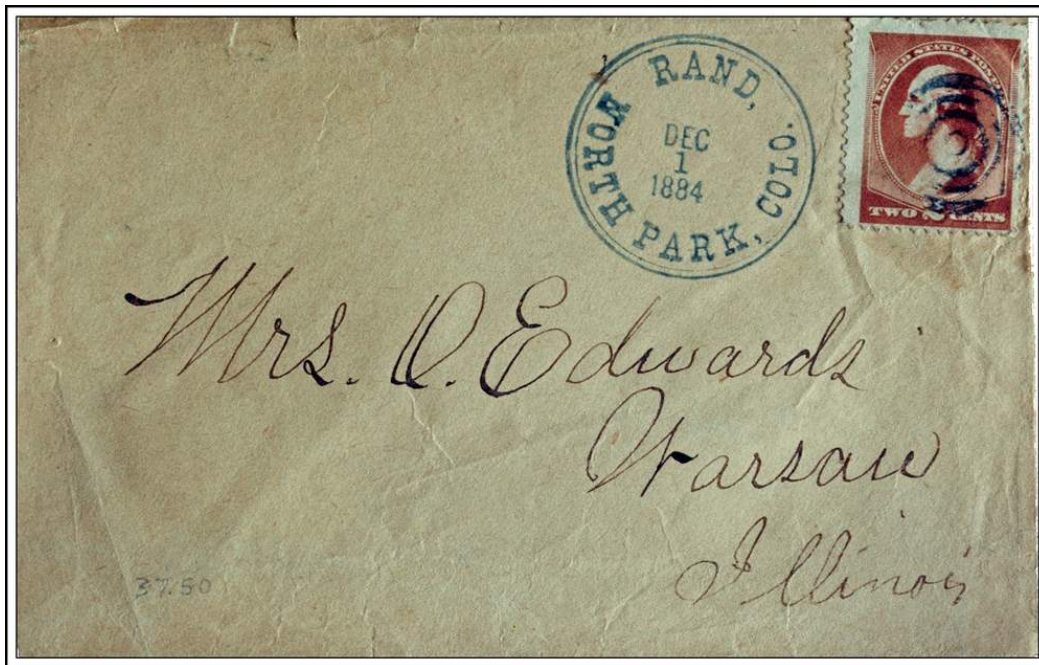 RAND,
NORTH PARK, COLO.
DEC
1
1884
UNITED STATES POSTAGE
TWO 2 CENTS
Mrs. O. Edwards
Warsaw
Illinois
37.50